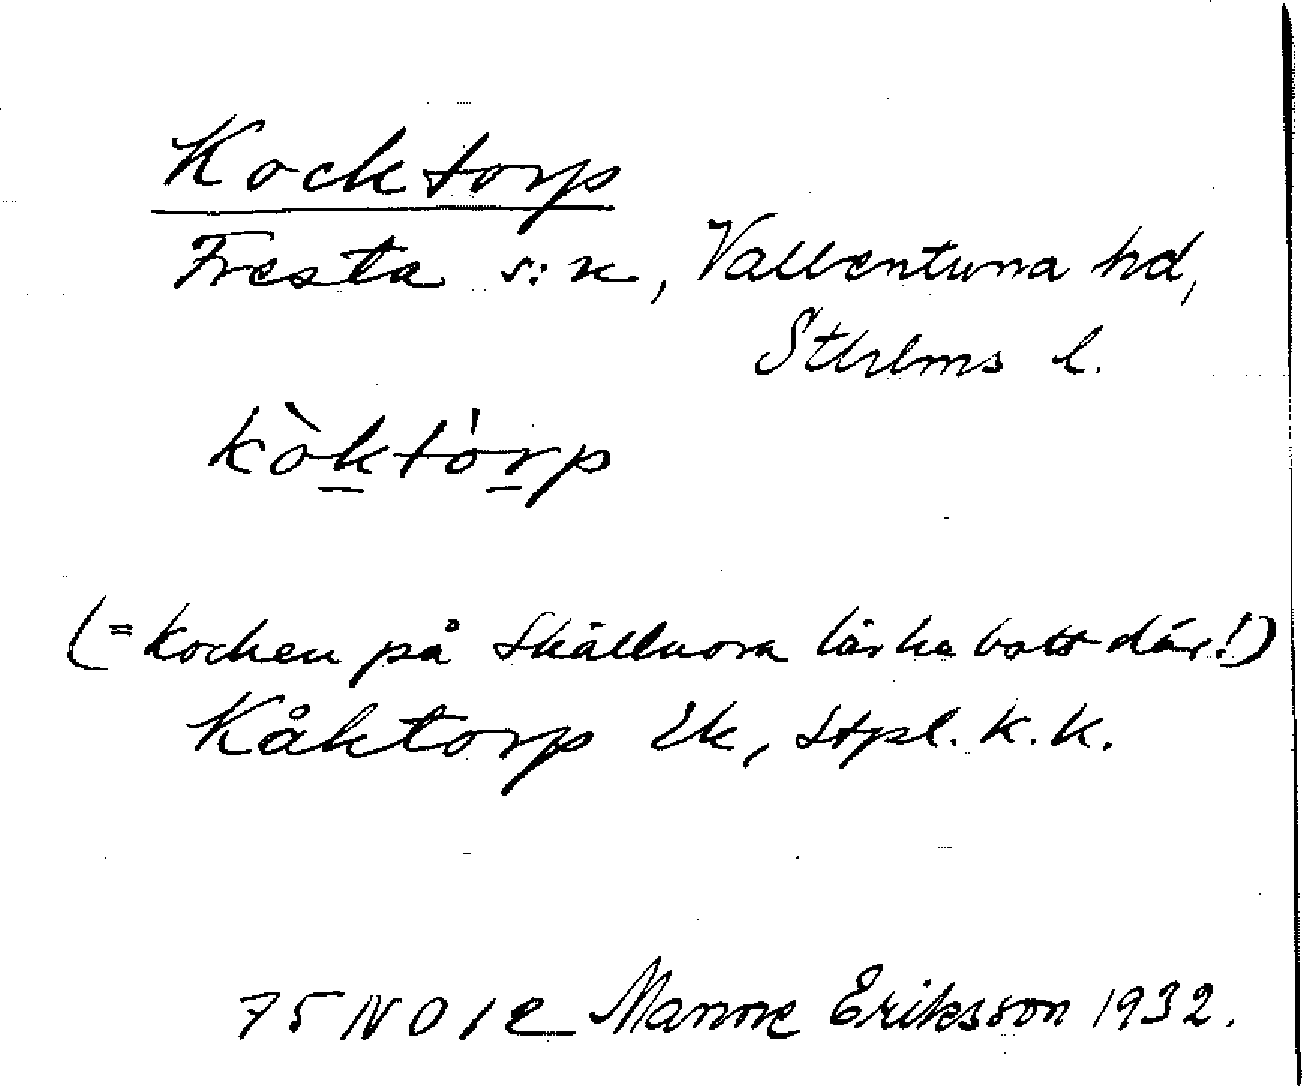 Kocktorp
Fresta s:n, Vallentuna hd,
Sthlms l.
kòktórp
(= kocken på Skällnora lär ha bott där!)
Kåktorp Ek, stpl. k.k.
75 NO 1e Manne Eriksson 1932.